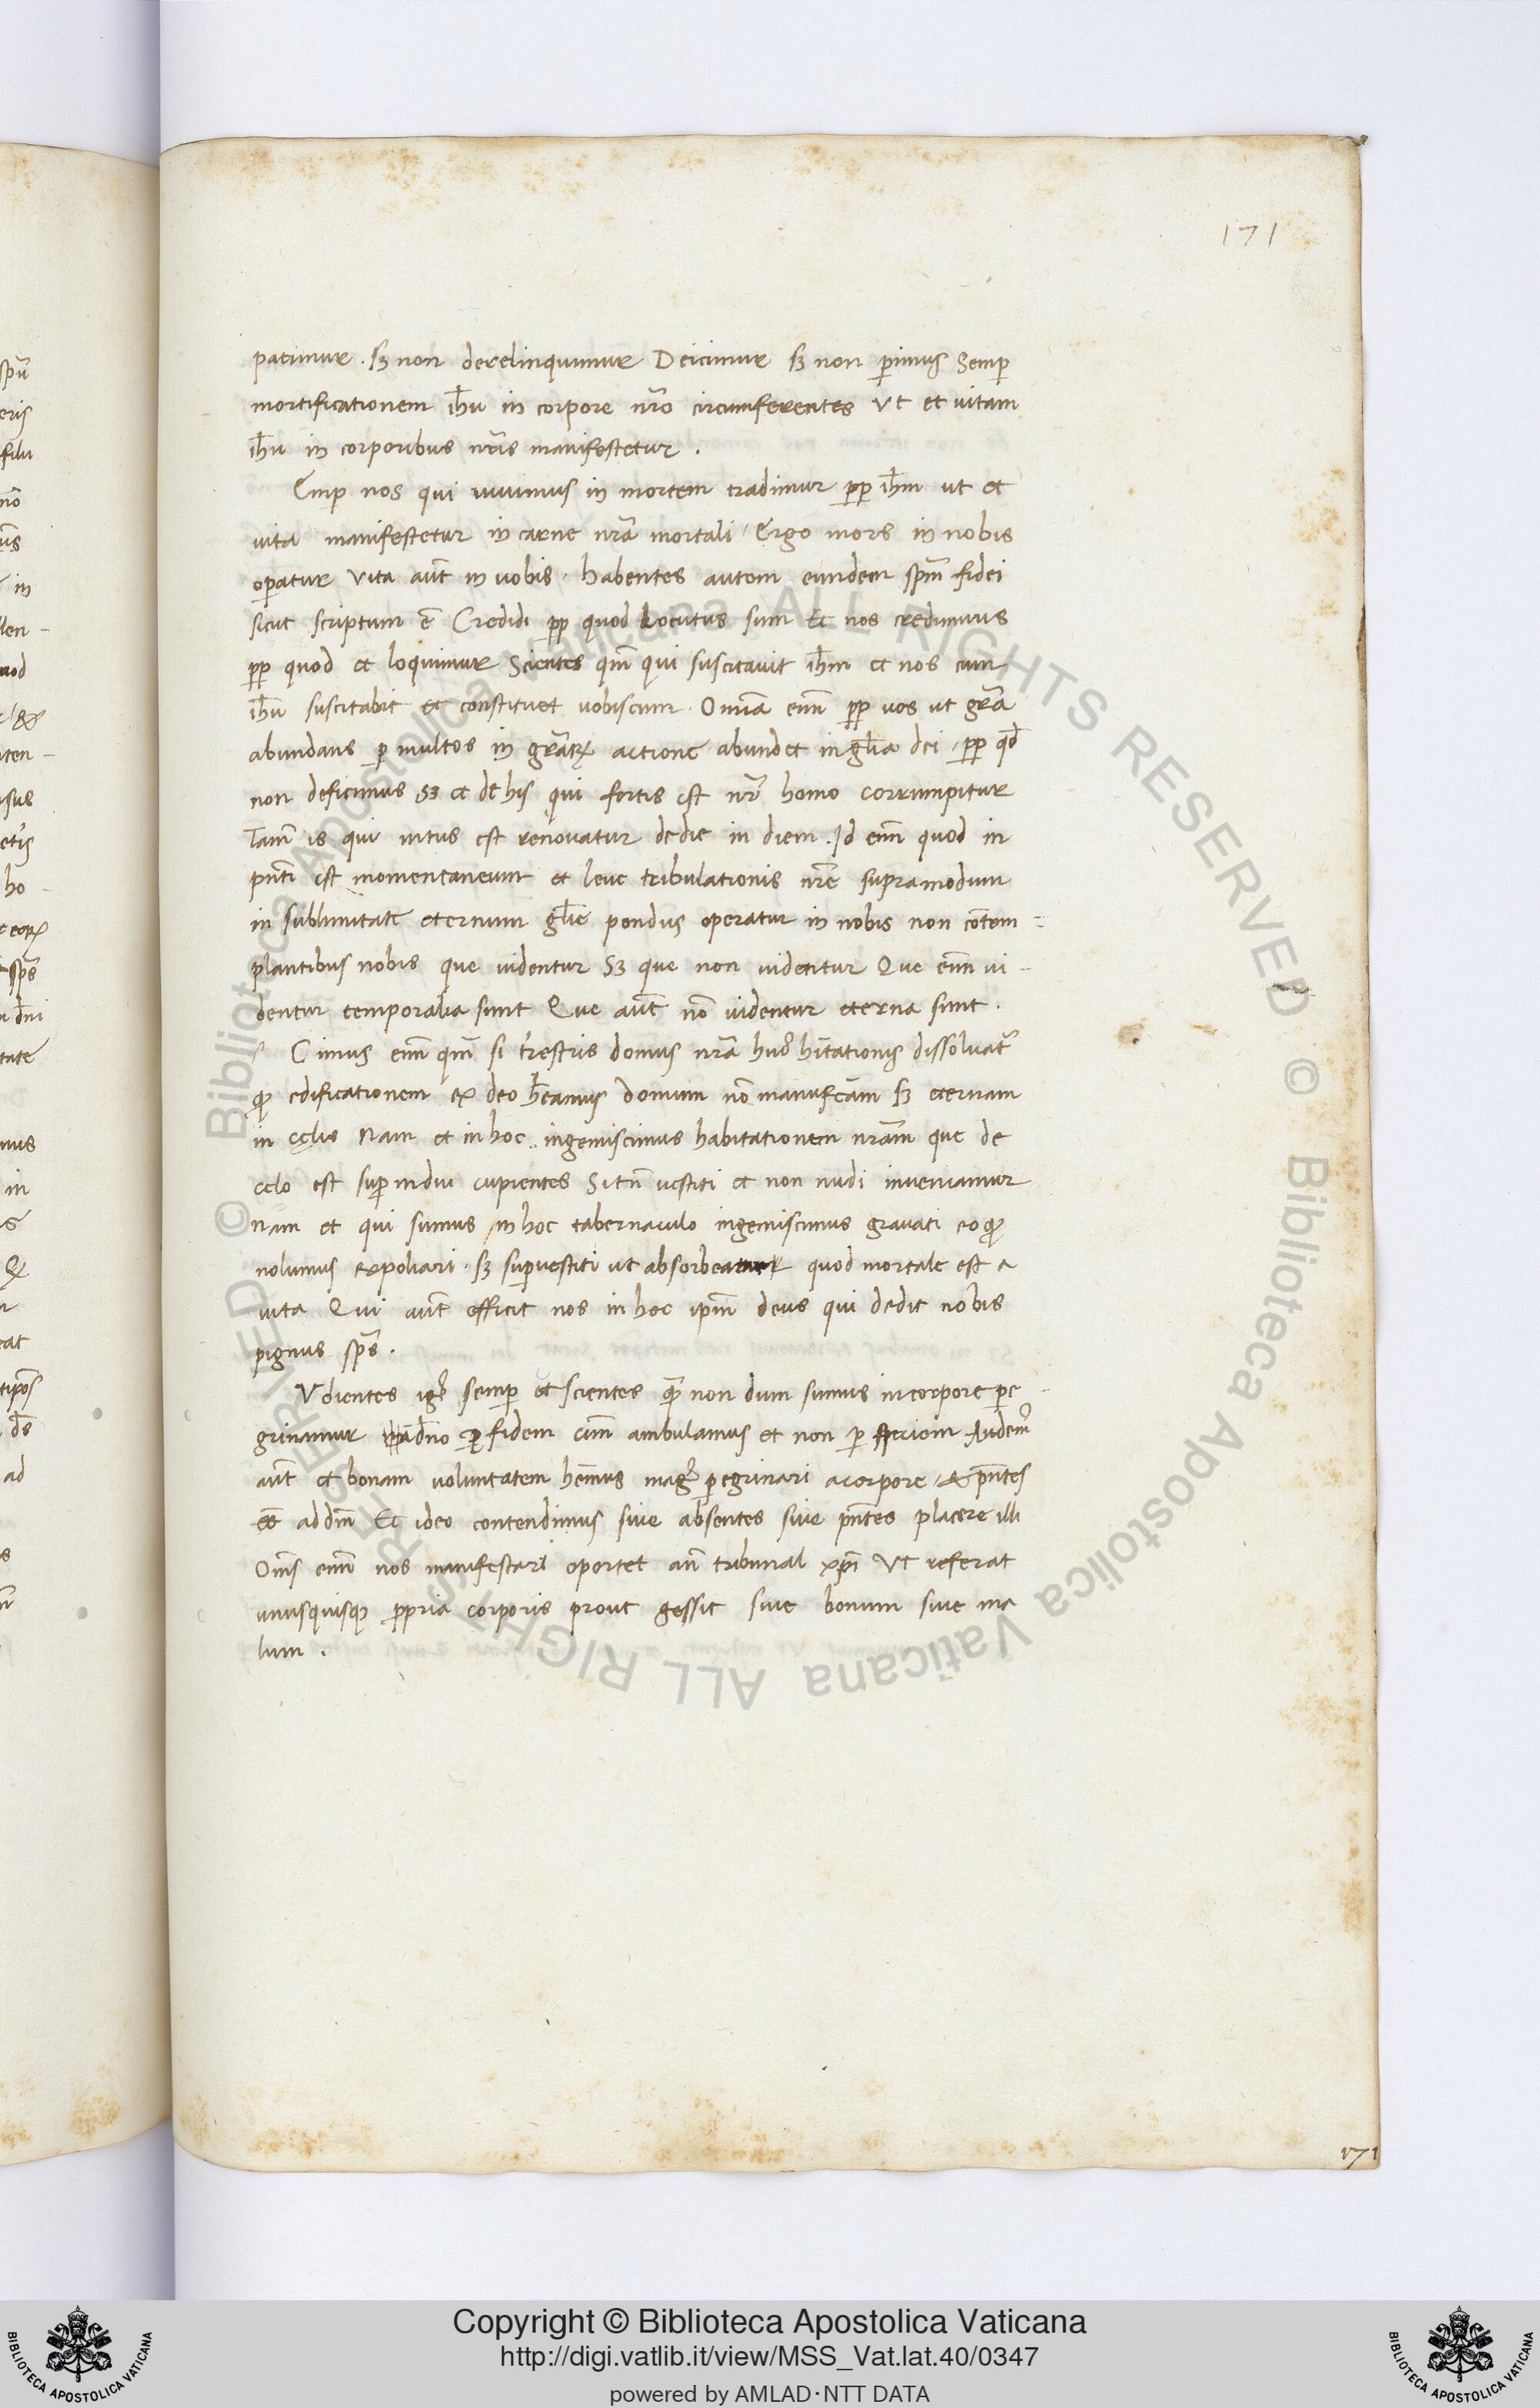 171
patimur . sꝫ non derelinquimur Deicimur sꝫ non ꝑimus Semꝑ
mortificationem ih̄u in corpore nr̄o circumferentes Vt et uitam
ih̄u in corporibus nr̄is manifestetur .
Emꝑ nos qui uiuimus in mortem tradimur ꝓpꝑ ih̄m ut et
uita manifestetur in carne nr̄a mortali Ergo mors in nobis
oꝑatur Vita aūt in uobis . habentes autem eundem spm̄ fidei
sicut scriptum ē Credidi ꝓpꝑ quod Locutus sum Et nos credimus
ꝓpꝑ quod et loquimur Scientes qm̄ qui suscitauit ih̄m et nos cum
ih̄u suscitabit et constituet uobiscum . Omīa enī ꝓpꝑ uos ut gr̄a
abundans ꝑ multos in gr̄aꝝ actione abundet in gl̄ia dei . ꝓpꝑ qd̄
non deficimus Sꝫ et de his qui foris est nr̄ homo corrumpitur
Tam̄ is qui intus est renouatur de die in diem . Id enī quod in
pn̄ti est momentaneum et leue tribulationis nr̄e supra modum
in sublimitate eternum gl̄ie pondus operatur in nobis non cōtem-
plantibus nobis que uidentur Sꝫ que non uidentur Que enī ui-
dentur temporalia sunt Que aūt nō uidentur eterna sunt .
s Cimus enī qm̄ si tr̄estris domus nr̄a hui9 hītationis dissoluat᷑
ꝙ edificationem ex deo h̄eamus domum nō manufcām sꝫ eternam
in cęlis Nam et in hoc ingemiscimus habitationem nr̄am que de
celo est suꝑindui cupientes Si tn̄ uestiti et non nudi inueniamur
Nam et qui sumus in hoc tabernaculo ingemiscimus grauati eo ꝙ
nolumus expoliari . sꝫ suꝑuestiti ut absorbeatur quod mortale est a
uita Qui aūt efficit nos in hoc ipm̄ deus qui dedit nobis
pignus sps̄ .
Vdientes igr̄ semꝑ et scientes qm̄ non dum sumus in corpore pe-
grinamur ad̄no ꝑ fidem enī ambulamus et non ꝑ speciem Audem9
aūt et bonam uoluntatem hēmus mag9 ꝑegrinari a corpore et pn̄tes
eē ad dm̄ Et ideo contendimus siue absentes siue pn̄tes placere illi
Om̄s enī nos manifestari oportet an̄ tribunal xp̄i Vt referat
unusquisqꝫ ꝓpria corporis prout gessit siue bonum siue ma
lum .
171
© Biblioteca Apostolica Vaticana ALL RIGHTS RESERVED © Biblioteca Apostolica Vaticana ALL RIGHTS RESERVED
Copyright © Biblioteca Apostolica Vaticana
http://digi.vatlib.it/view/MSS_Vat.lat.40/0347
powered by AMLAD·NTT DATA
BIBLIOTECA APOSTOLICA VATICANA
BIBLIOTECA APOSTOLICA VATICANA